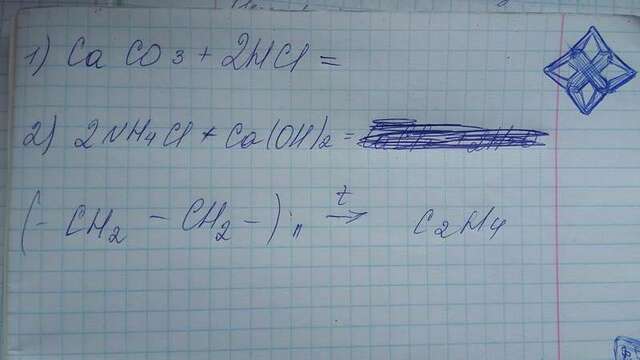 1) CaCO3 + 2HCl =
2) 2NH4Cl + Ca(OH)2 =
(-CH2 - CH2 -)n t → C2H4